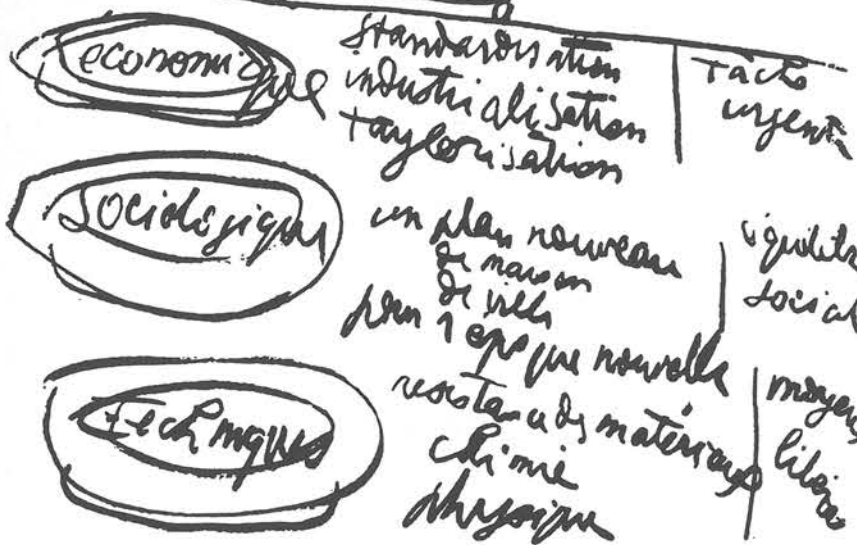 economique
standardisation
industrialisation
taylorisation
tâche
urgente
sociologique
un plan nouveau
de maison
de ville
pour 1 époque nouvelle
équilibre
social
techniques
resistance des matériaux
chimie
physique
moyens